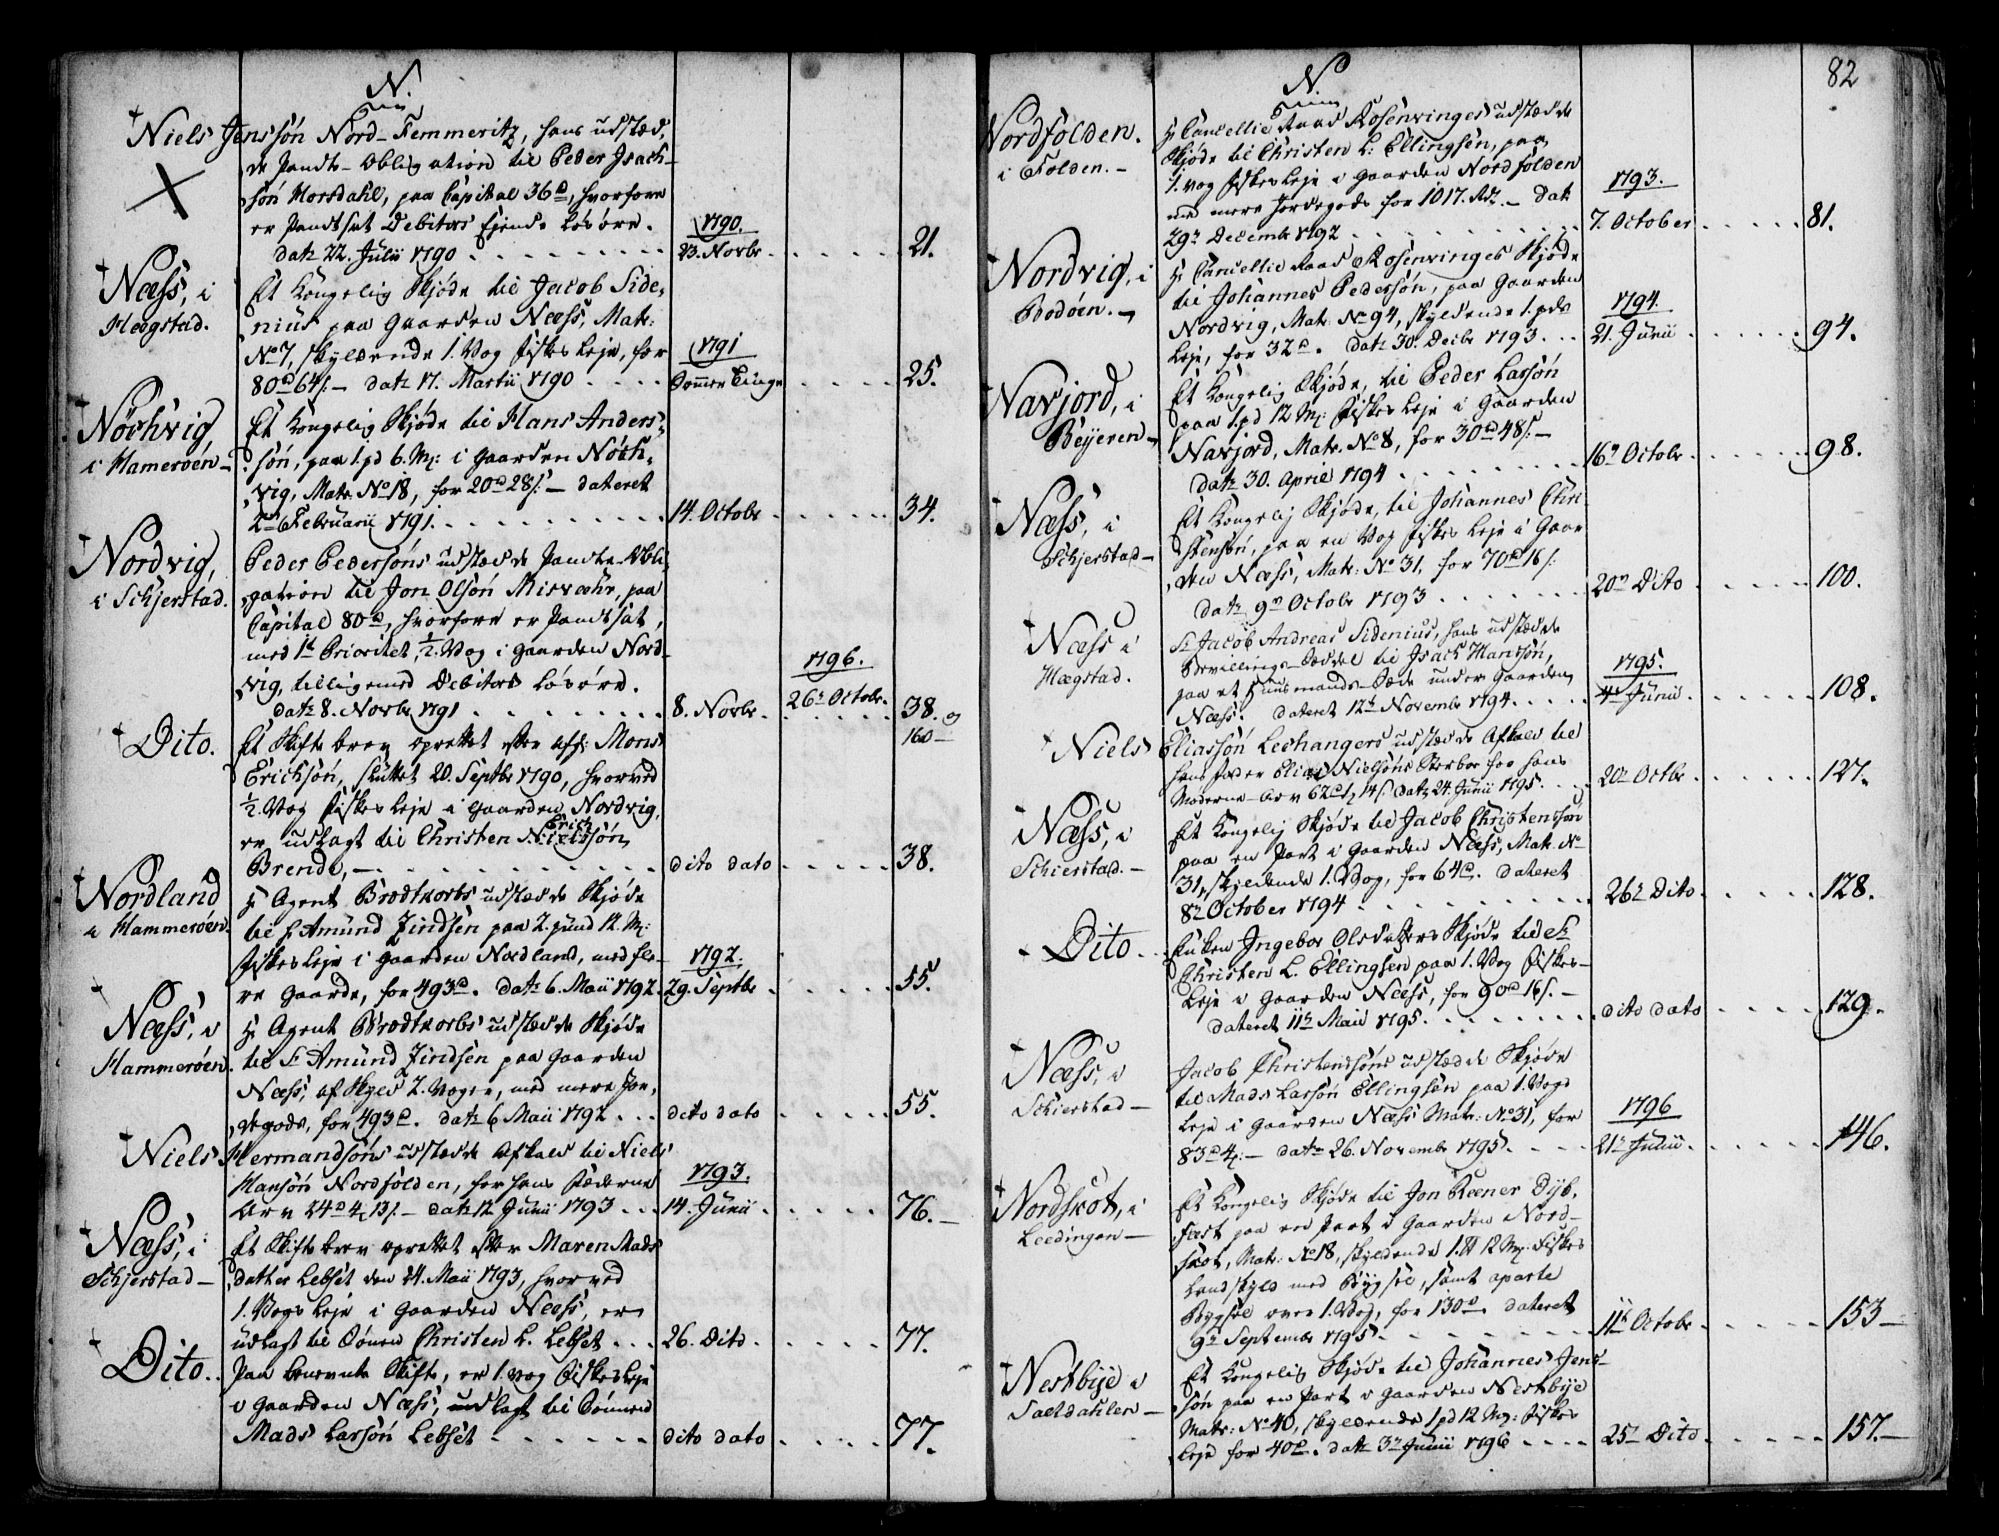 N.
Niels Jenssön Nord-Femmeritz, hans udstæd-
de Pandte-Obligation til Peder Isach-
sön Morsdahl, paa Capital 36 rd, hvorfore
er Pandtsat Debitors Ejende Lösöre.
datr 22. Julii 1790 1790. 23. Novbr 21.
Næss, i Et Kongelig Skjöde til Jacob Side-
Hægstad. nius paa Gaarden Næss, Matr:
No 7, skyldende 1. Vog Fiskes Leje, for 1791
80 rd 64 s. – datr 17. Martii 1790 Sommer Tinge 25.
Nöchvig, Et Kongelig Skjöde til Hans Anders-
i Hameröen – sön, paa 1 pd 6. Mk: i Gaarden Nöch-
vig, Matr. No 18, for 20 rd 28 s. – dateret
2den Februarii 1791. 14. Octobr 34.
Nordvig, Peder Pedersöns udstædde Pandte-Obli-
i Schjerstad. gation til Jon Olsön Misvæhr, paa
Capital 80 rd, hvorfore er Pandtsat,
med 1te Prioritet, 1/2. Vog i Gaarden Nord- 1796.
vig, tilligemed Debitors Lösöre. 26de Octobr.
datr 8. Novbr 1791 8. Novbr. 38. og
160 –
Dito. Et Skiftebrev oprettet efter afg: Mons
Ericksön, sluttet 20. Septbr 1790, hvorved
1/2. Vog Fiskes Leje i Gaarden Nordvig,
Erich
er udlagt til Christen Nielssön
Brende, – dito dato 38.
Nordland Hr Agent Brodtkorbs udstædde Skjöde
i Hammeröen. til Sr Amund Zindsen paa 2. pund 12. Mk:
Fiskes Leje i Gaarden Nordland, med fle- 1792.
re Gaarde, for 493 rd. datr 6. Maii 1792. 29. Septbr 55.
Næss, i Hr Agent Brodtkorbs udstædde Skjöde
Hammeröen. til Sr Amund Zindsen paa Gaarden
Næss, af Skyld 2. Voger, med mere Jor-
degods, for 493 rd. datr 6 Maii 1792 dito dato 55.
Niels Hermandsöns udstædde Afkald til Niels
Hansön Nordfolden, for hans Fæderne 1793.
Arv 24 rd 4 mk 13 s. – datr 12 Junii 1793 14. Junii 76. –
Næss, i Et Skiftebrev oprettet efter Maren Mads
Schjerstad – datter Lebset den 24. Maii 1793, hvorved
1. Vogs Leje i Gaarden Næss, er
udlagt til Sönen Christen L. Lebset 26. Dito 77.
Dito. Paa benevnte Skifte, er 1. Vog Fiskes Leje
i Gaarden Næss, udlagt til Sönnen
Mads Larsön Lebset dito dato 77.
N. 82
Nordfolden. Hr Cancellie Raad Rosenvinges udstædde
i Folden. – Skjöde til Christen L: Ellingsen, paa
1. Vog Fiskes Leje i Gaarden Nordfolden 1793.
med mere Jordegods for 1017. Rd. – dat
29de Decembr 1792 7. October 81.
Nordvig, i Hr Cancellie Raad Rosenvinges Skjöde
Bodöen. – til Johannes Pedersön, paa Gaarden
Nordvig, Matr. No 94, skyldende 1. pds 1794.
Leje, for 32 rd. datr 30. Decbr 1793. 21. Junii 94.
Navjord, i Et Kongelig Skjöde, til Peder Larsön
Beyeren – paa 1. pd 12 Mk: Fiskes Leje i Gaarden
Navjord, Matr. No 8, for 30 rd 48 s. –
datr 30. April 1794 16de Octobr 98.
Næss, i Et Kongelig Skjöde, til Johannes Chri-
Schjerstad – stensön, paa en Vog Fiskes Leje i Gaar-
den Næss, Matr: No 31, for 70 rd 16 s:
datr 9de Octobr 1793 20de Dito 100.
Næss i Sr Jacob Andreas Sidenius, hans udstædde
Hægstad. Bevillings-Seddel til Isach Hansön,
paa et Huusmands-Sæde under Gaarden 1795.
Næss. dateret 12te Novembr 1794. 4de Junii 108.
Niels Eliassön Leehangers udstædde Afkald til
hans Fader Elias Nielsöns Sterboe for hans
Moderne-Arv 62 rd 1 mk 14 s. datr 24. Junii 1795. 20de Octbr 127.
Næss, i Et Kongelig Skjöde til Jacob Christensön
Schierstad. – paa en Part i Gaarden Næss, Matr. No
31, skyldende 1. Vog, for 64 rd. dateret
8de October 1794 26de Dito 128.
Dito. Enken Ingebor Olsdatters Skjöde til Sr
Christen L. Ellingsen paa 1. Vog Fiskes-
Leje i Gaarden Næss, for 90 rd 16 s. –
dateret 11te Maii 1795. dito dato 129.
Næss, i Jacob Christensöns udstædde Skjöde
Schierstad – til Mads Larsön Ellingsen paa 1. Vogs
Leje i Gaarden Næss Matr: No 31, for 1796
83 rd 4 mk: – datr 26. Novembr 1795. 21de Junii 146.
Nordskot, i Et Kongelig Skjöde til Jon Reener Dyb-
Leedingen – fæst paa en Part i Gaarden Nord-
skot, Matr: No 18, skyldende 1. pd 12 Mk: Fiskes
Landskyld med Bygsel, samt aparte
Bygsel over 1. Vog, for 130 rd. dateret
9de Septembr 1795. 11te Octobr 153 –
Nestbye i Et Kongelig Skjöde til Johannes Jens-
Saltdahlen – sön paa en Part i Gaarden Nestbye
Matr: No 40, skyldende 1 pd 12 Mk: Fiskes
Leje for 40 rd. datr 3de Junii 1796 25de Dito 157. –